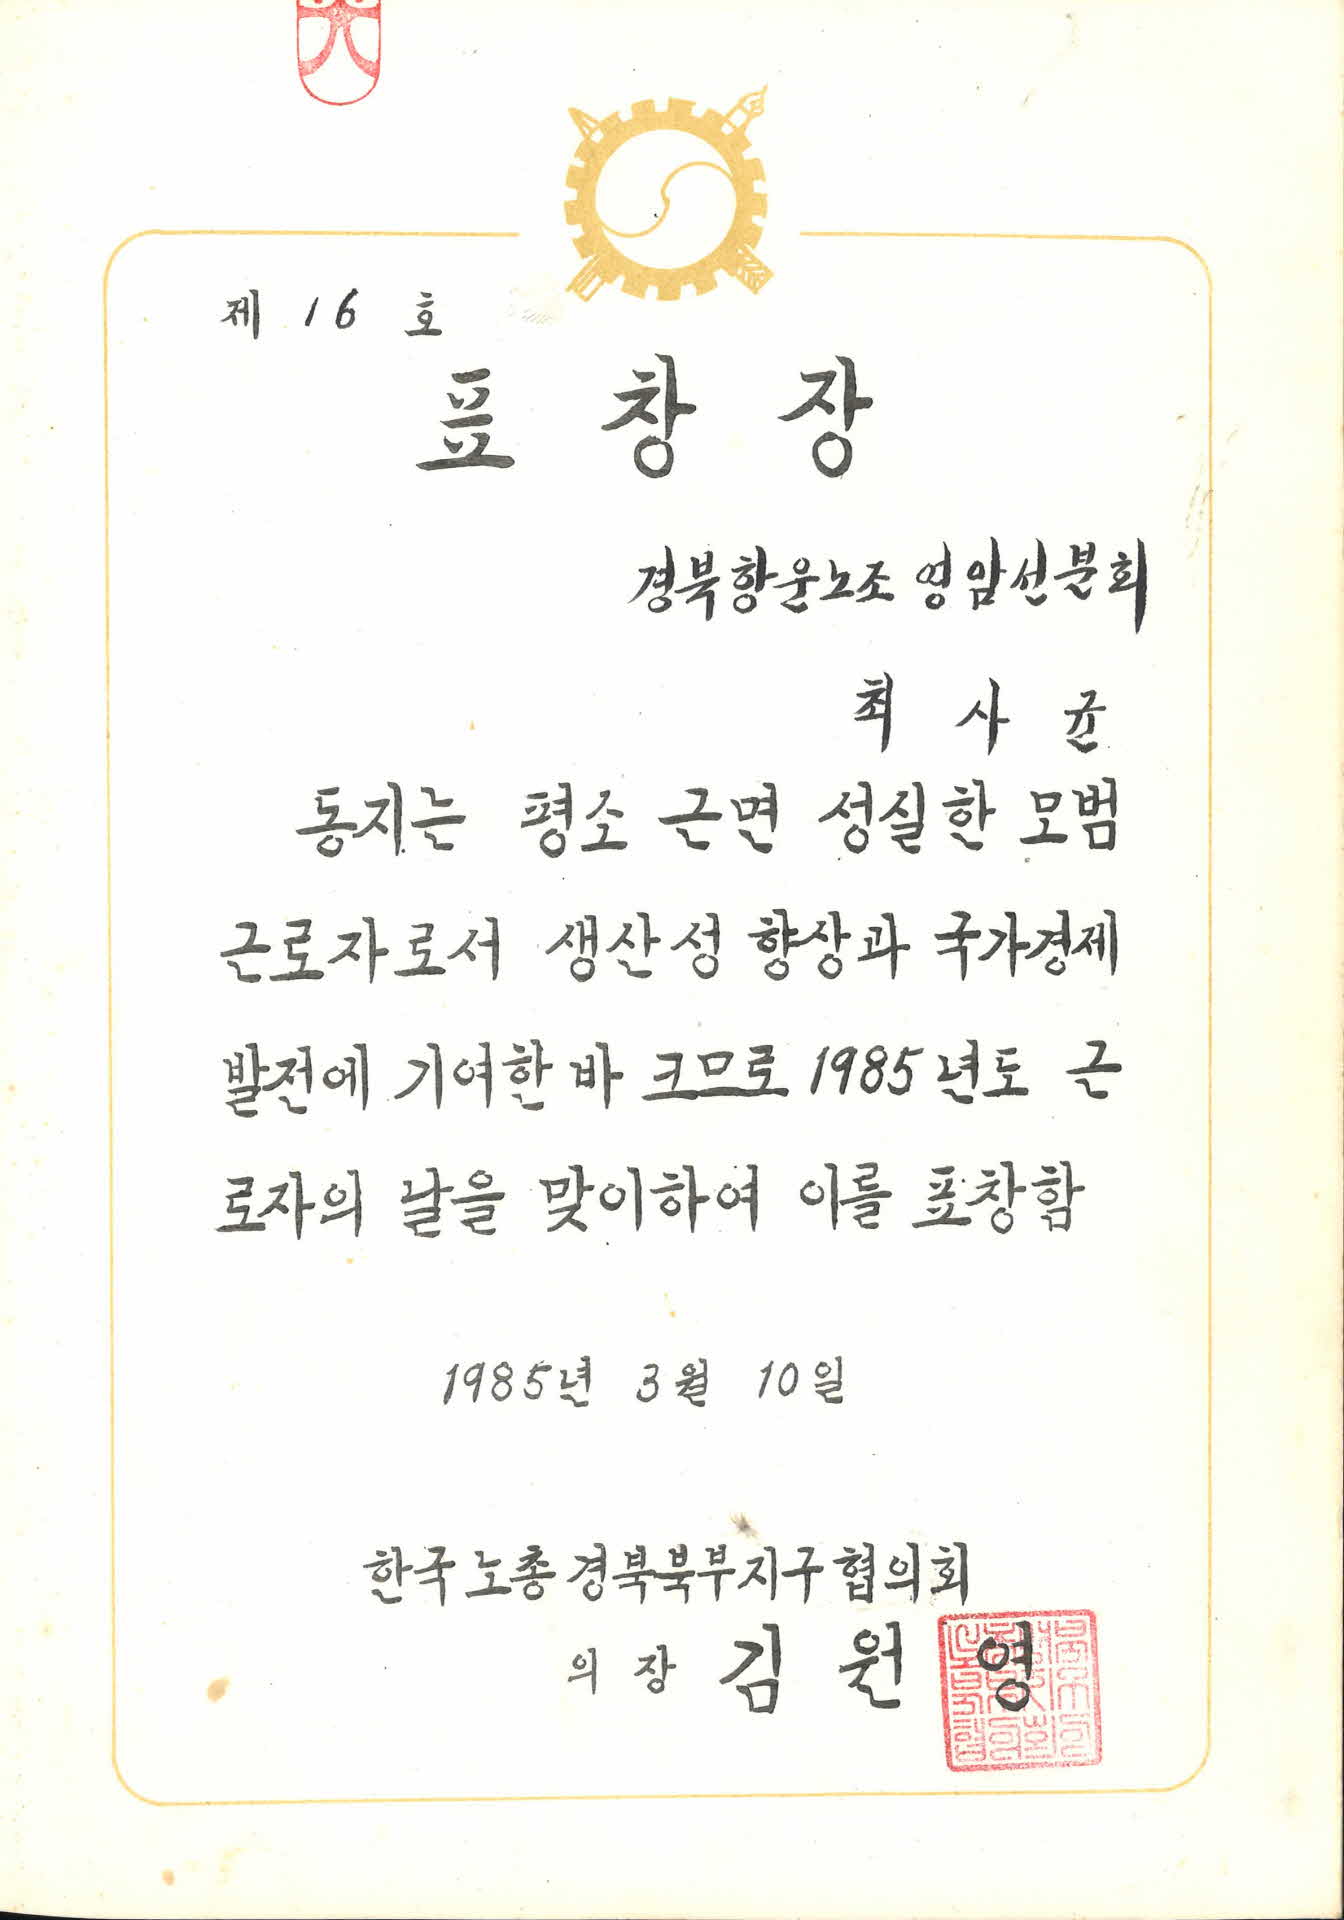 제 16 호
표 창 장
경북항운노조 영암선분회
최 사 균
동지는 평소 근면 성실한 모범
근로자로서 생산성 향상과 국가경제
발전에 기여한 바 크므로 1985년도 근
로자의 날을 맞이하여 이를 표창함
1985년 3월 10일
한국노총경북북부지구협의회
의장 김원영